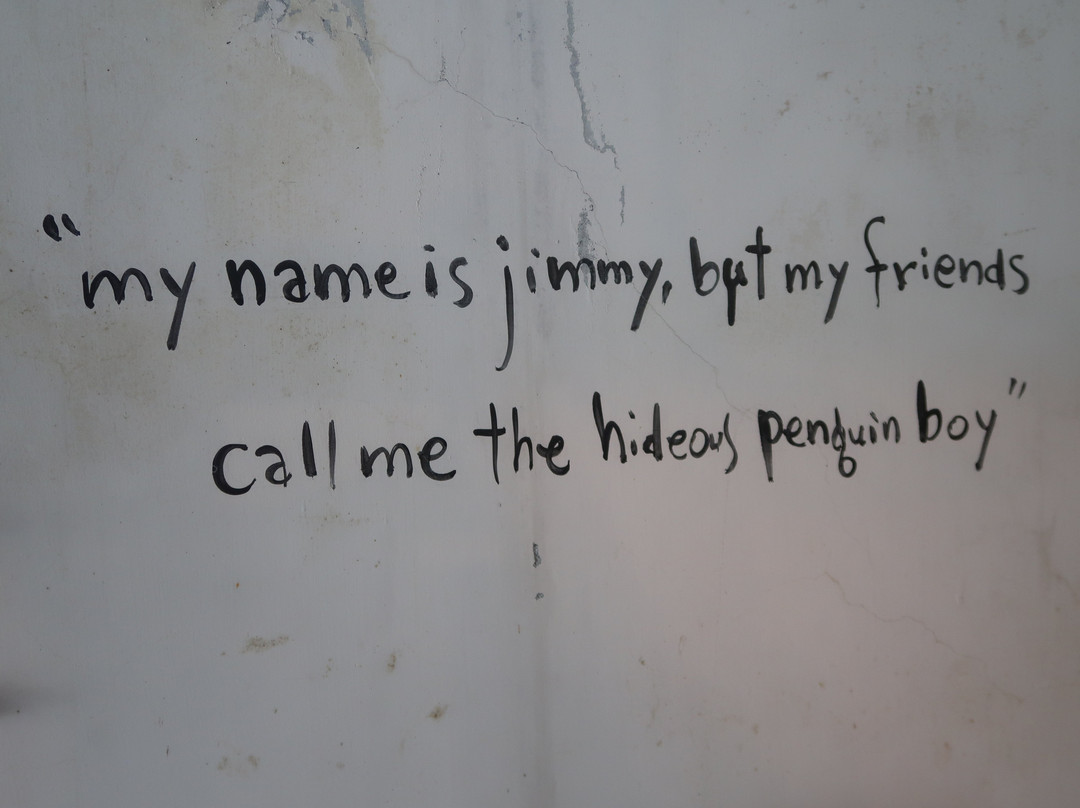 "my name is jimmy, but my friends
call me the hideous penguin boy"